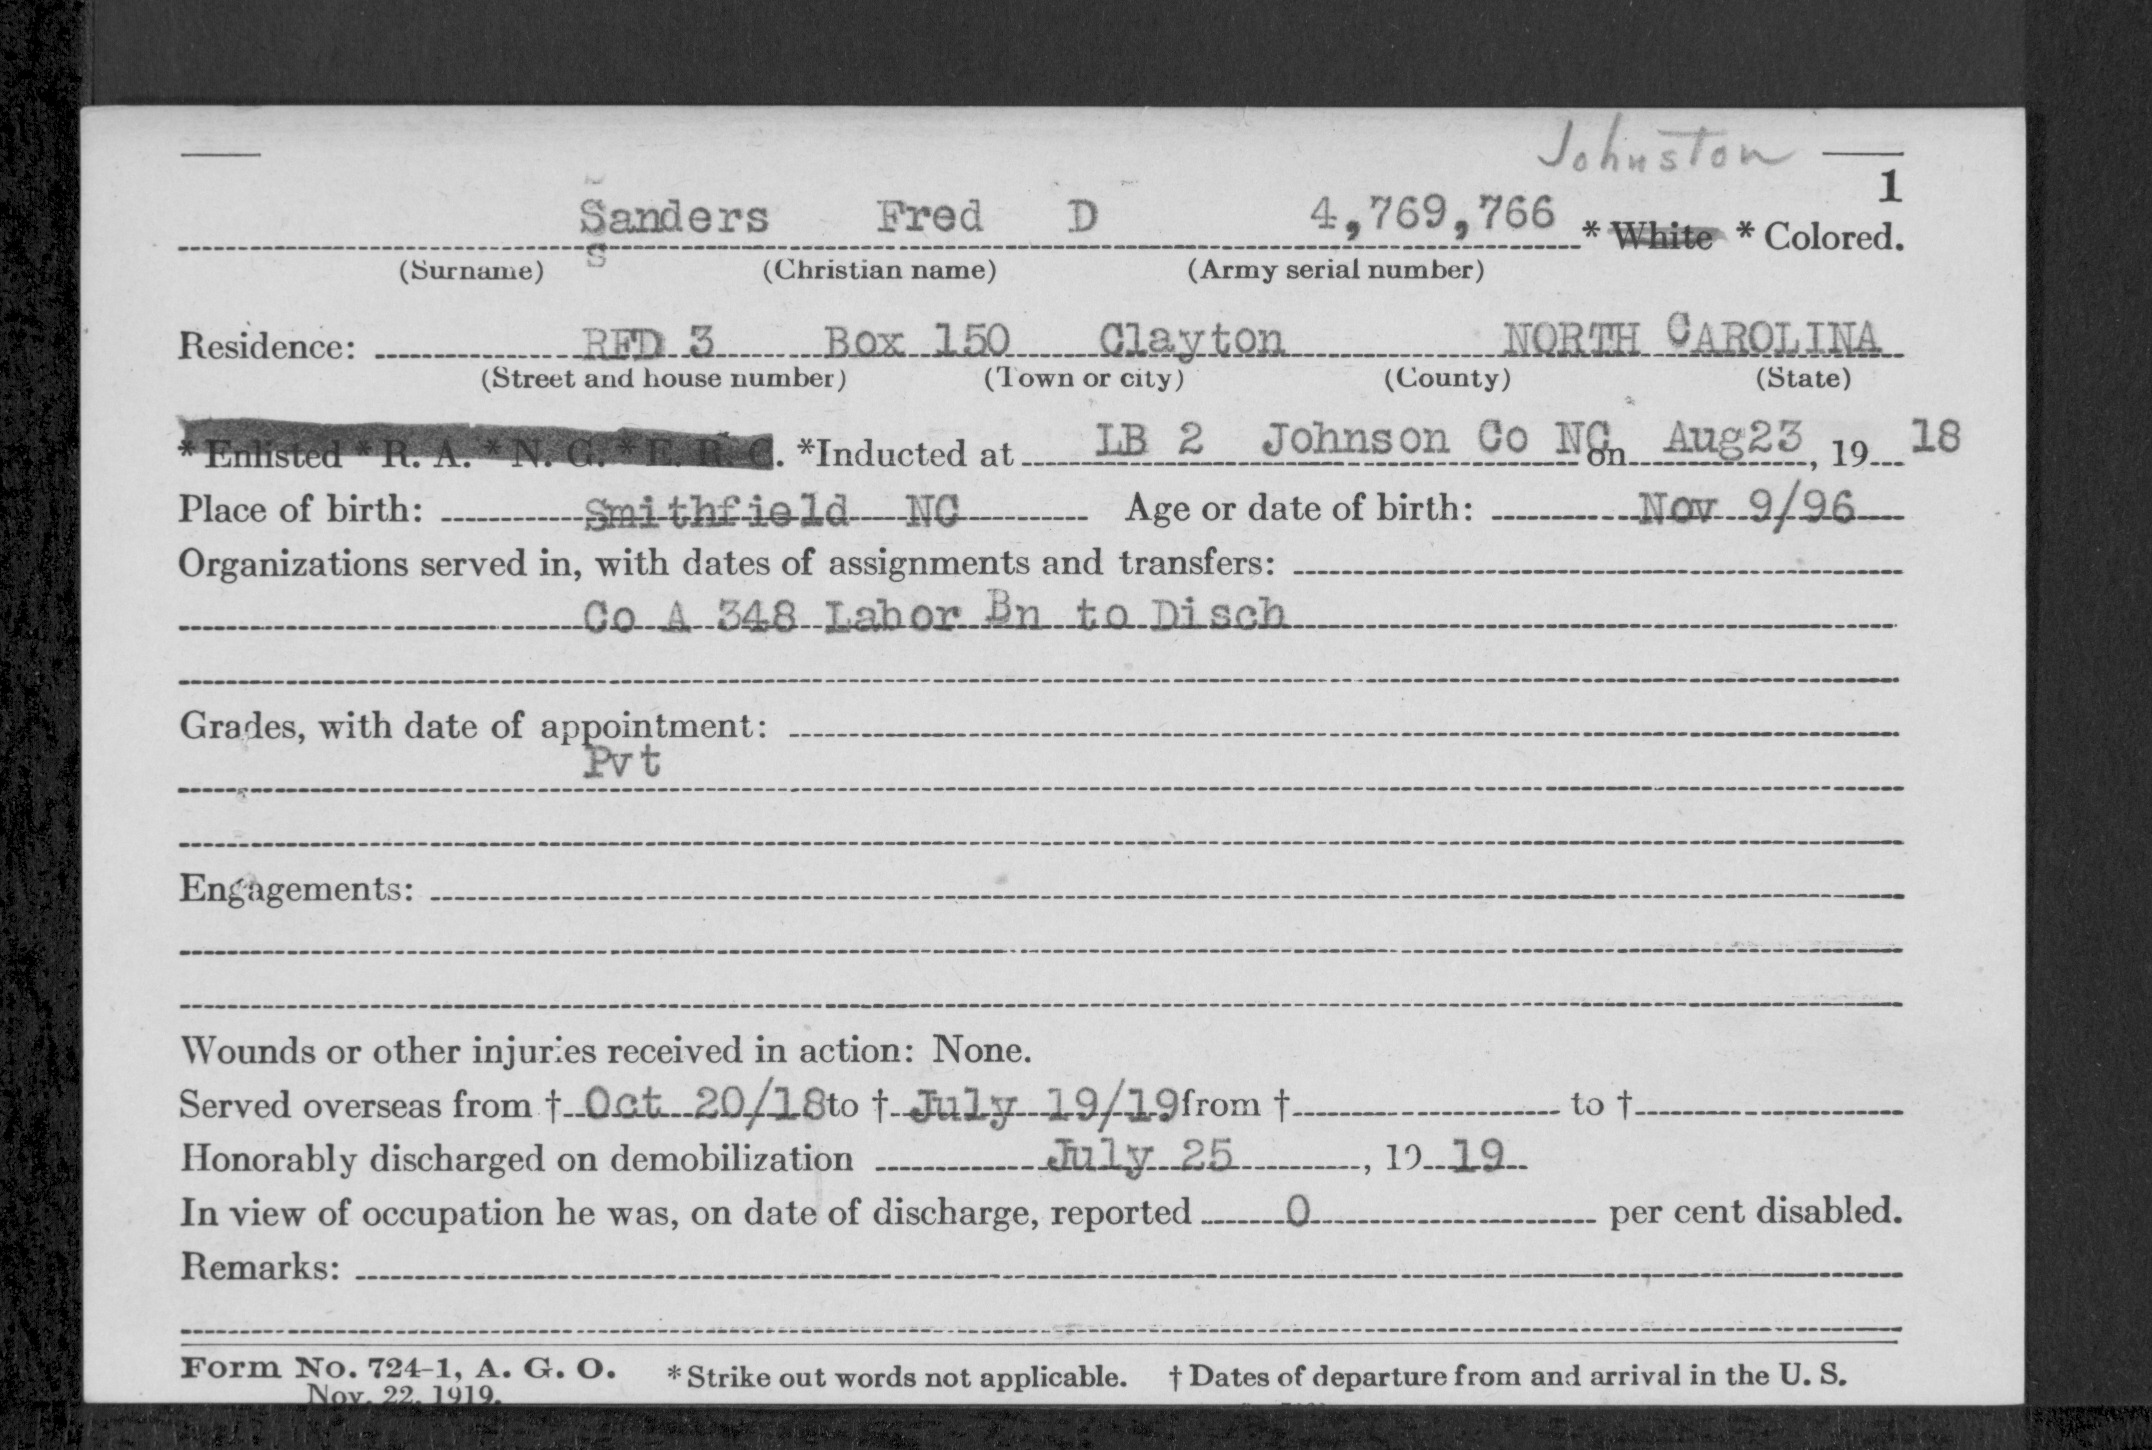 Johnston
1
Sanders Fred D 4,769,766 * White * Colored.
s
(Surname) (Christian name) (Army serial number)
Residence: RFD 3 Box 150 Clayton NORTH CAROLINA
(Street and house number) (Town or city) (County) (State)
* Enlisted * R. A. * N. G. * E. R. C. *Inducted at LB 2 Johnson Co NC on Aug23, 19 18
Place of birth: Smithfield NC Age or date of birth: Nov 9/96
Organizations served in, with dates of assignments and transfers:
Co A 348 Labor Bn to Disch
Grades, with date of appointment:
Pvt
Engagements:
Wounds or other injuries received in action: None.
Served overseas from † Oct 20/18 to † July 19/19 from † to †
Honorably discharged on demobilization July 25, 19 19
In view of occupation he was, on date of discharge, reported 0 per cent disabled.
Remarks:
Form No. 724-1, A. G. O. * Strike out words not applicable. † Dates of departure from and arrival in the U. S.
Nov. 22, 1919.